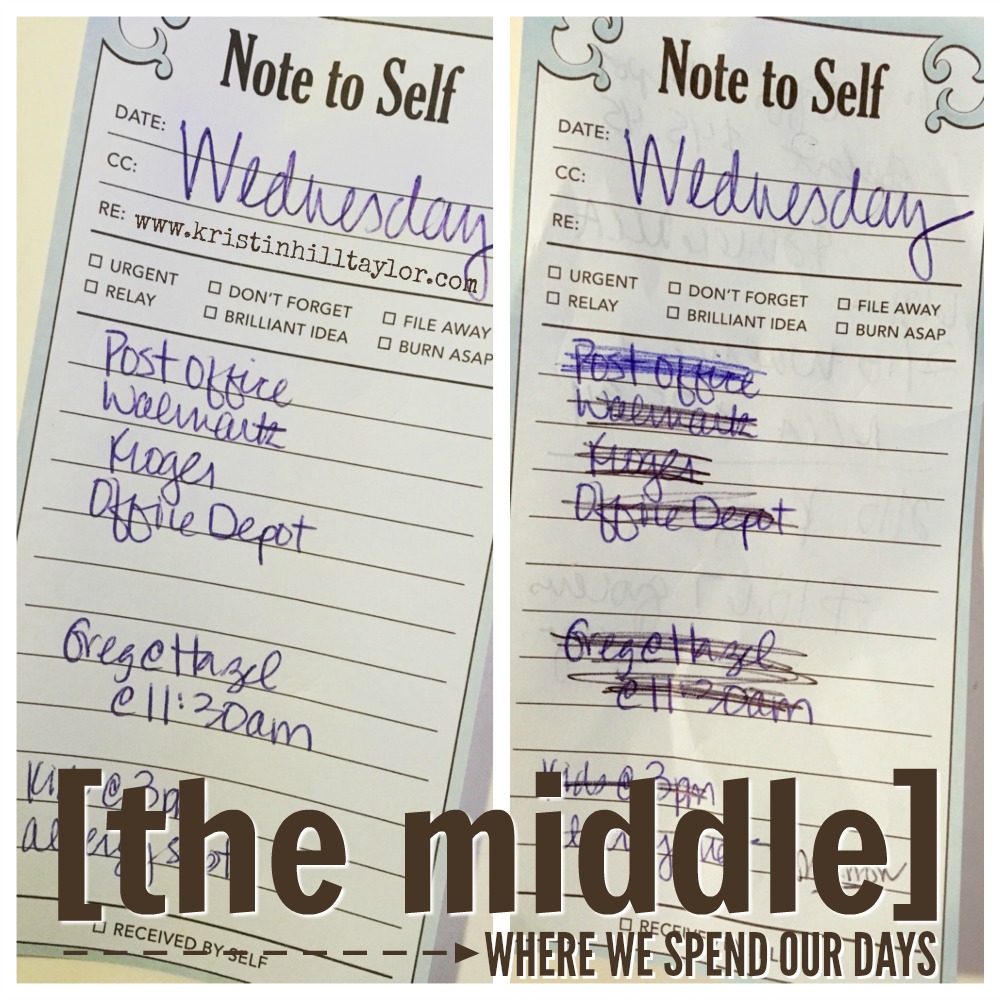 Note to Self
DATE:
Wednesday
CC:
RE: www.kristinhilltaylor.com
URGENT
DON'T FORGET
FILE AWAY
RELAY
BRILLIANT IDEA
BURN ASAP
Post Office
Walmart
Kroger
Office Depot
Greg @ Hazel
@ 11:30am
@ 3pm
RECEIVED BY SELF
Note to Self
DATE:
Wednesday
CC:
RE:
URGENT
DON'T FORGET
FILE AWAY
RELAY
BRILLIANT IDEA
BURN ASAP
Post Office
Walmart
Kroger
Office Depot
Greg @ Hazel
@ 11:30am
Kids @ 3pm
[the middle]
WHERE WE SPEND OUR DAYS